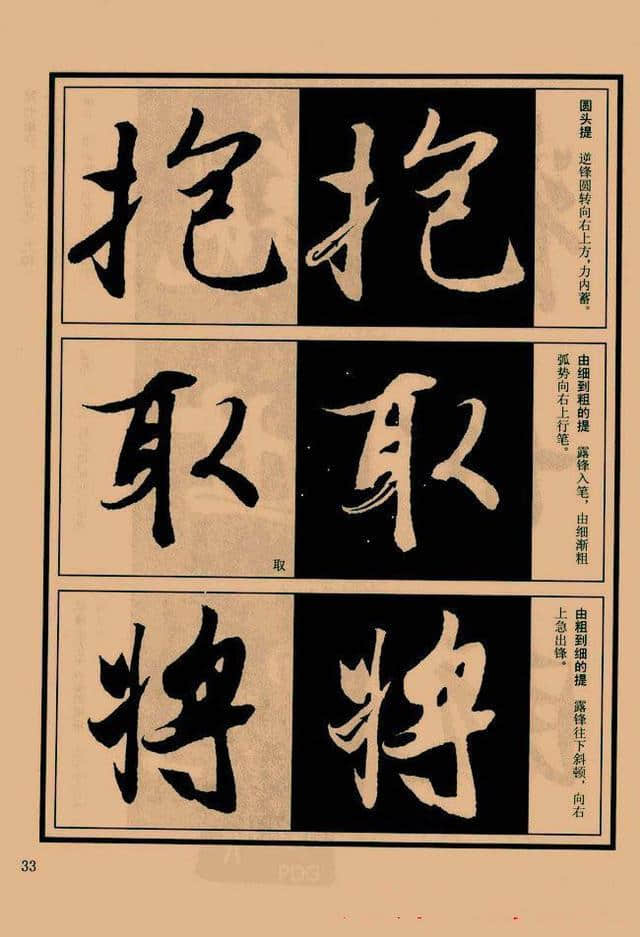 抱 抱
圆头提 逆锋圆转向右上方，力内蓄。
取 取
取
由细到粗的提 露锋入笔，由细渐粗
弧势向右上行笔。
将 将
由粗到细的提 露锋往下斜顿，向右
上急出锋。
33